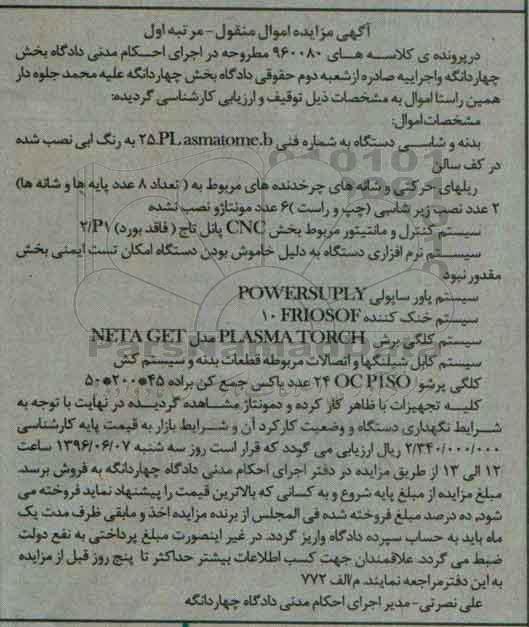 آگهی مزایده اموال منقول - مرتبه اول
درپرونده ی کلاسه های ۹۶۰۰۸۰ مطروحه در اجرای احکام مدنی دادگاه بخش
چهاردانگه واجراییه صادره ازشعبه دوم حقوقی دادگاه بخش چهاردانگه علیه محمد جلوه دار
همین راستا اموال به مشخصات ذیل توقیف و ارزیابی کارشناسی گردیده:
مشخصات اموال:
بدنه و شاسی دستگاه به شماره فنی ۲۵.PL asmatome.b به رنگ ابی نصب شده
در کف سالن
ریلهای حرکتی و شانه های چرخدنده های مربوط به ( تعداد ۸ عدد پایه ها و شانه ها)
۲ عدد نصب زیر شاسی (چپ و راست )۶ عدد مونتاژو نصب نشده
سیستم کنترل و مانتیتور مربوط بخش CNC پانل تاچ ( فاقد بورد) ۲/P۱
سیستم نرم افزاری دستگاه به دلیل خاموش بودن دستگاه امکان تست ایمنی بخش
مقدور نبود
سیستم پاور ساپولی POWERSUPLY
سیستم خنک کننده FRIOSOF ۱۰
سیستم کلگی برش PLASMA TORCH مدل NETA GET
سیستم کابل شیلنگها و اتصالات مربوطه قطعات بدنه و سیستم کش
کلگی پرشو OC P1SO ۲۴ عدد باکس جمع کن براده ۴۵*۲۰۰*۵۰
کلیه تجهیزات با ظاهر کار کرده و دمونتاژ مشاهده گردیده در نهایت با توجه به
شرایط نگهداری دستگاه و وضعیت کارکرد آن و شرایط بازار به قیمت پایه کارشناسی
۲/۳۴۰/۰۰۰/۰۰۰ ریال ارزیابی می گودد که قرار است روز سه شنبه ۱۳۹۶/۰۶/۰۷ ساعت
۱۲ الی ۱۳ از طریق مزایده در دفتر اجرای احکام مدنی دادگاه چهاردانگه به فروش برسد.
مبلغ مزایده از مبلغ پایه شروع و به کسانی که بالاترین قیمت را پیشنهاد نماید فروخته می
شود. ده درصد مبلغ فروخته شده فی المجلس از برنده مزایده اخذ و مابقی ظرف مدت یک
ماه باید به حساب سپرده دادگاه واریز گردد. در غیر اینصورت مبلغ پرداختی به نفع دولت
ضبط می گردد. علاقمندان جهت کسب اطلاعات بیشتر حداکثر تا پنج روز قبل از مزایده
به این دفترمراجعه نمایند. م/الف ۷۷۲
علی نصرتی - مدیر اجرای احکام مدنی دادگاه چهاردانگه